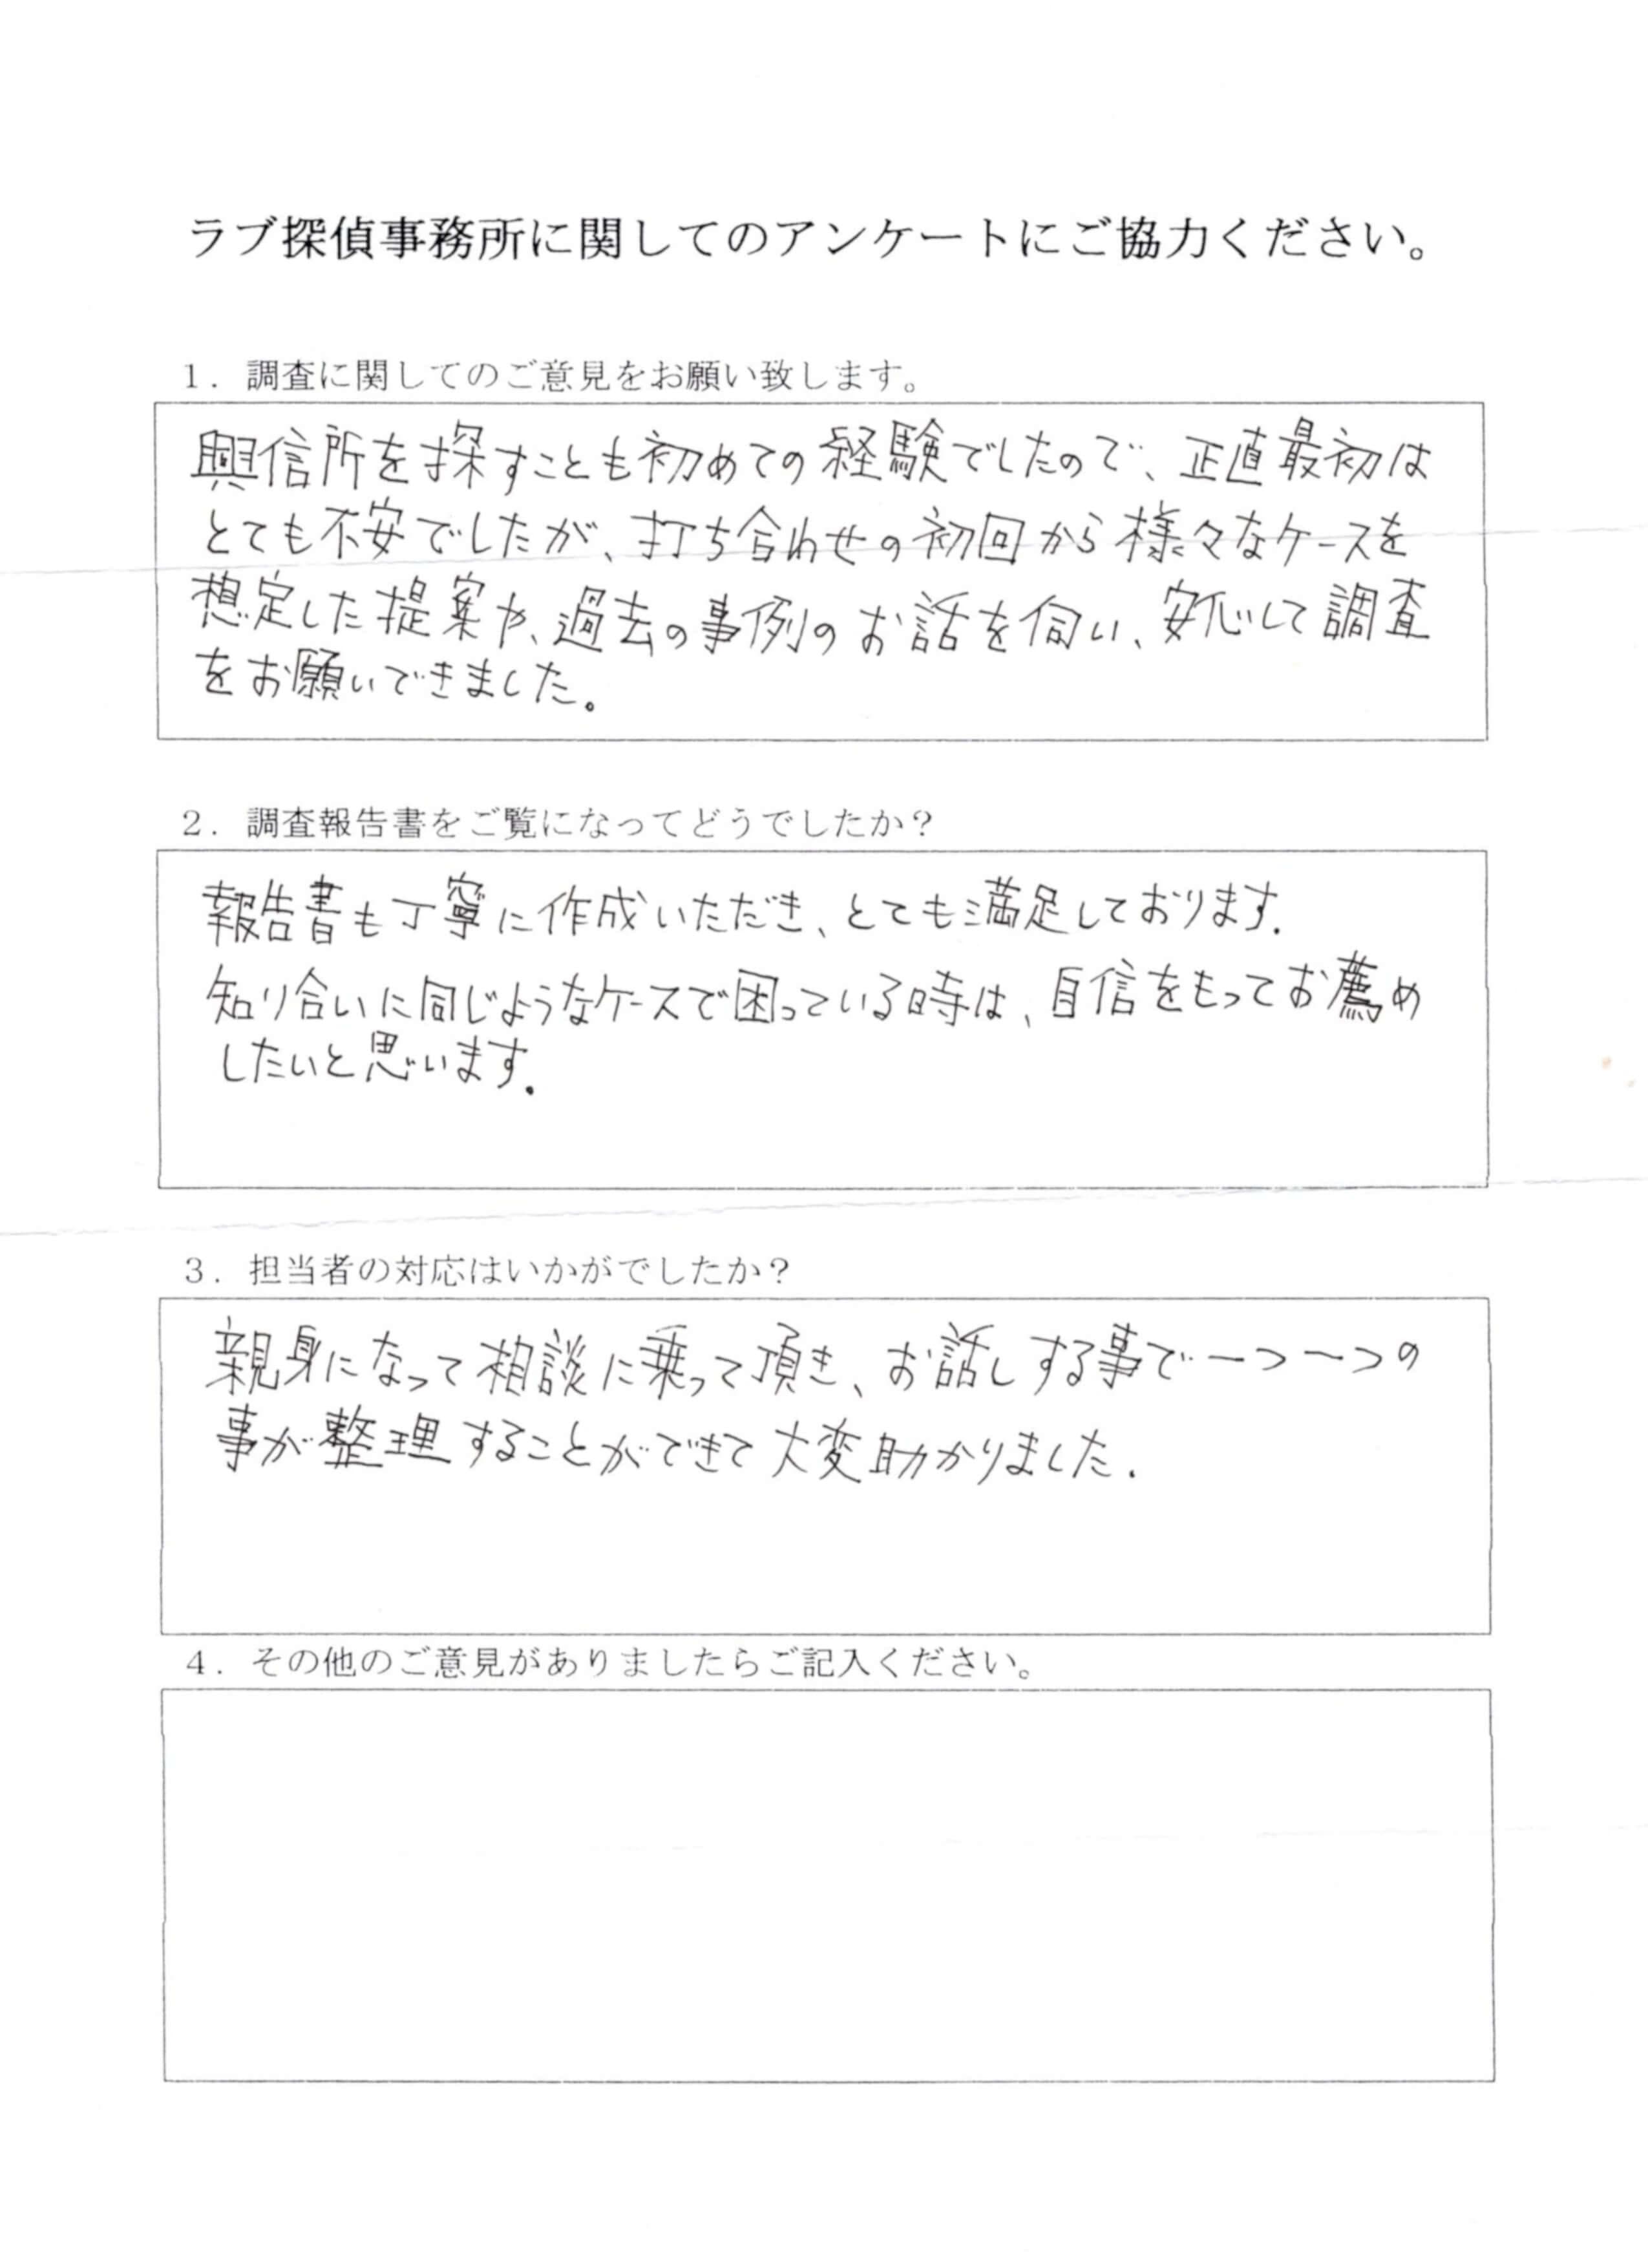 ラブ探偵事務所に関してのアンケートにご協力ください。
１．調査に関してのご意見をお願い致します。
興信所を探すことも初めての経験でしたので、正直最初は
とても不安でしたが、打ち合わせの初回から様々なケースを
想定した提案や、過去の事例のお話を伺い、安心して調査
をお願いできました。
２．調査報告書をご覧になってどうでしたか？
報告書も丁寧に作成いただき、とても満足しております.
知り合いに同じようなケースで困っている時は、自信をもってお薦め
したいと思います.
３．担当者の対応はいかがでしたか？
親身になって相談に乗って頂き、お話しする事で一つ一つの
事が整理することができて大変助かりました.
４．その他のご意見がありましたらご記入ください。